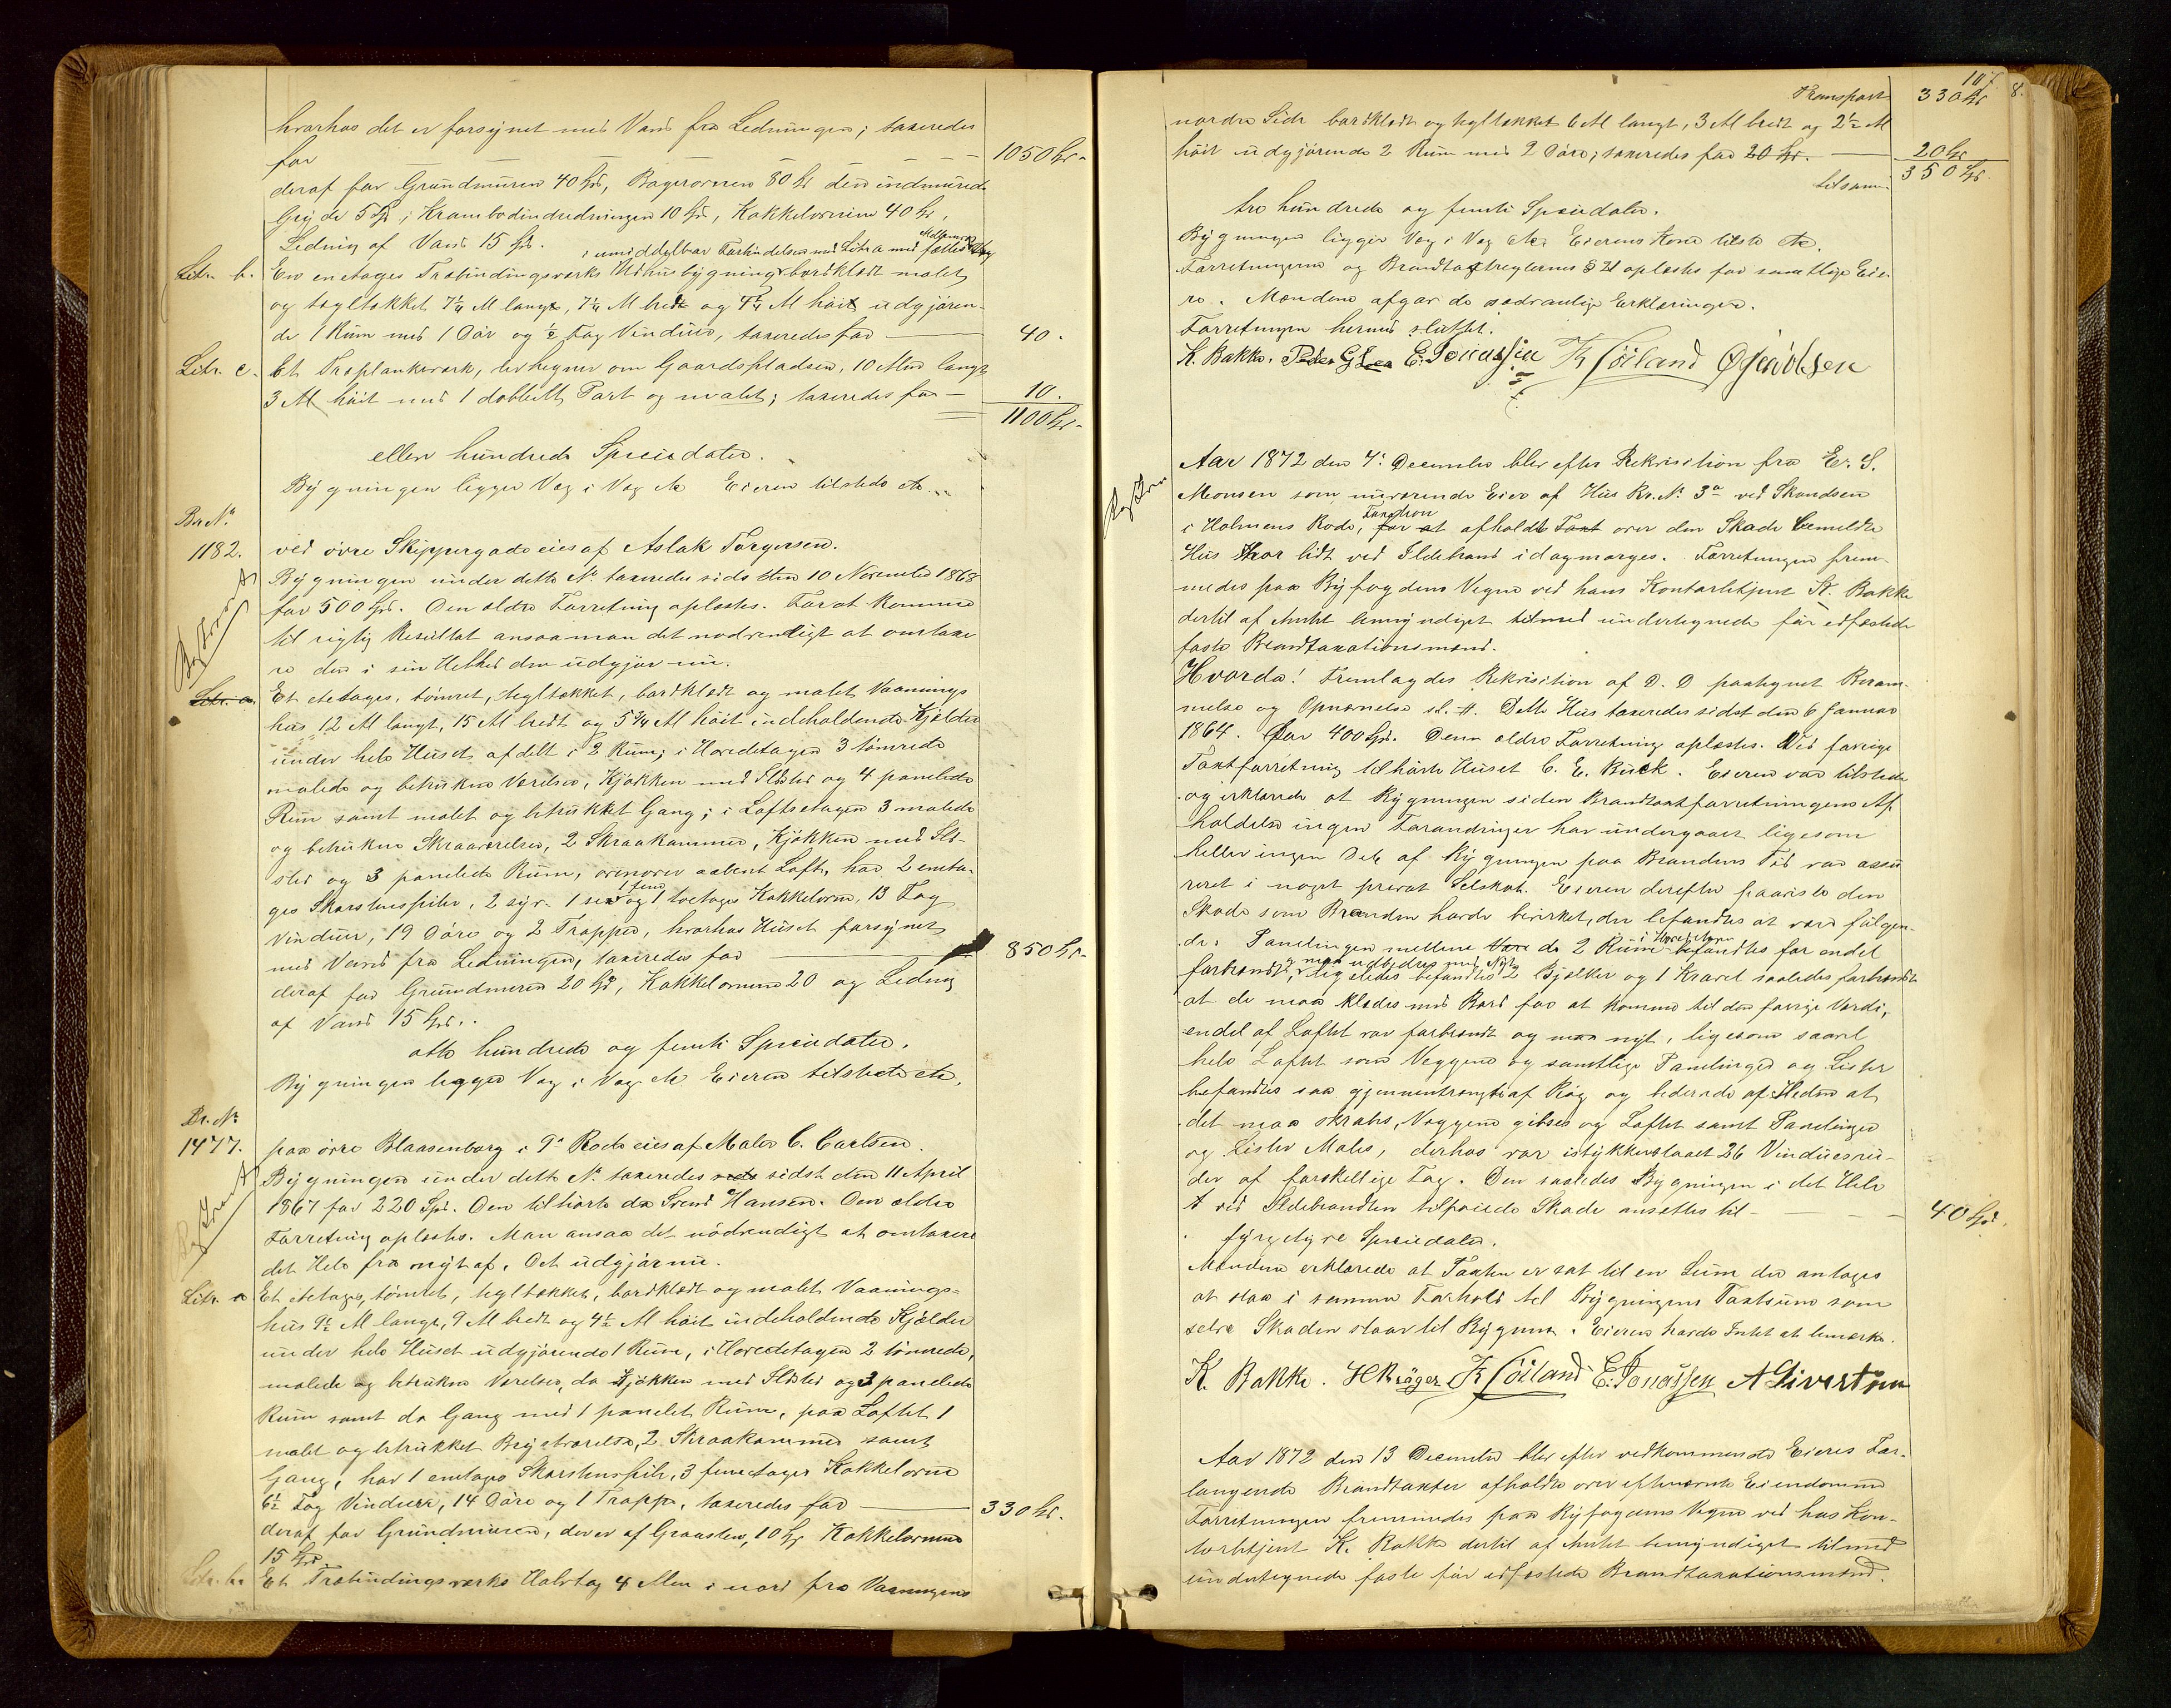 hvorhos det er forsynet med Vand fra Ledningen; taxeredes
for — — — — — — — 1050 Spd.
deraf for Grundmuren 40 Spd, Bagerovnen 80 Spd den indmurede
Gryde 5 Spd, Krambodindredningen 10 Spd, Kakkelovnene 40 Spd,
Ledning af Vand 15 Spd.
i umiddelbar Forbindelse med Litr a med fælles
Litr. b. En enetages Træbindingsværks Udhusbygning bordklædt malet
og tegltækket 7¼ Al langt, 7¼ Al bredt og 4¼ Al höit udgjören-
de 1 Rum med 1 Dör og ½ Fag Vindue, taxeredes for — 40.
Litr. c. Et Træplankeværk, der hegner om Gaardspladsen, 10 Alen langt
3 Al höit med 1 dobbelt Port og malet; taxeredes for — 10.
1100 Spd.
elleve hundrede Speciedaler.
Bygningen ligger Væg i Væg &c Eieren tilstede &c.
Br. No
1182. ved övre Skippergade eies af Aslak Torgersen.
Bygningen under dette No taxeredes sidst den 10 November 1868
for 500 Spd. Den ældre Forretning oplæstes. For at komme
til rigtig Resultat ansaa man det nödvendigt at omtaxe
re den i sin Helhed den udgjör nu.
Litr. a Et etetages, tömret, tegltækket, bordklædt og malet Vaanings
hus 12 Al langt, 15 Al bredt og 5¾ Al höit indeholdende Kjælder
under hele Huset, afdelt i 2 Rum; i Hovedetagen 3 tömrede
malede og betrukne Værelser, Kjökken med Ildsted og 4 panelede
Rum samt malet og betrukket Gang; i Loftsetagen 3 malede
og betrukne Skraaværelser, 2 Skraakammer, Kjökken med Ild-
sted og 3 panelede Rum, ovenover aabent Loft, har 2 eneta-
ges Skorstenspiber, 2 syv- 1 sex og 1 toetages Kakkelovne, 13 Fag
Vinduer, 19 Döre og 2 Trapper, hvorhos Huset forsynet
med Vand fra Ledningen, taxeredes for — 850 Spd.
deraf for Grundmuren 20 Spd, Kakkelovnene 20 og Ledning
af Vand 15 Spd.
otte hundrede og femti Speciedaler.
Bygningen ligger Væg i Væg &c Eieren tilstede &c.
Br. No
1477. paa övre Blaasenborg i 9de Rode eies af Maler C. Carlsen.
Bygningen under dette No taxeredes sidst den 11 April
1867 for 220 Spd. Den tilhörte da Svend Hansen. Den ældre
Forretning oplæstes. Man ansaa det nödvendigt at omtaxere
det Hele fra nyt af. Det udgjör nu.
Litr. a Et etetages, tömret, tegltækket, bordklædt og malet Vaanings-
hus 9½ Al langt, 9 Al bredt og 4½ Al höit indeholdende Kjælder
under hele Huset udgjörende 1 Rum, i Hovedetagen 2 tömrede,
malede og betrukne Værelser, do Kjökken med Ildsted og 3 panelede
Rum samt do Gang med 1 panelet Rum, paa Loftet 1
malet og betrukket Qvistværelse, 2 Skraakammer samt
Gang, har 1 enetages Skorstenspibe, 3 femetages Kakkelovne
6½ Fag Vinduer, 14 Döre og 1 Trappe, taxeredes for — 330 Spd.
deraf for Grundmuren, der er af Graasten, 10 Spd Kakkelovnene
15 Spd.
Litr. b. Et Træbindingsværks Halvtag 4 Alen i nord fra Vaaningens
Transport 330 Spd
nordre Side bordklædt og tegltækket 6 Al langt, 3 Al bredt og 2½ Al
höit udgjörende 2 Rum med 2 Döre; taxeredes for 20 Spd. — 20 Spd
tilsam. 350 Spd.
tre hundrede og femti Speciedaler.
Bygningen ligger Væg i Væg &c; Eierens Kone tilste &c.
Forretningerne og Brandtaxtreglernes § 21 oplæstes for samtlige Eie-
re. Mændene afgav de sædvanlige Erklæringer.
Forretningen hermed sluttet.
K. Bakke. E. Jonassen K Söiland O Jacobsen
Aar 1872 den 4de December blev efter Rekvisition fra E. S.
Monsen som nuværende Eier af Hus Br. No 3a ved Skandsen
i Holmens Rode, Taxation afholdt over den Skade bemeldte
Hus har lidt ved Ildebrand idagmorges. Forretningen frem-
medes paa Byfogdens Vegne ved hans Kontorbetjent K. Bakke
dertil af Amtet bemyndiget tilmed undertegnede för edfæstede
faste Brandtaxationsmænd.
Hvorda! Fremlagdes Rekvisition af D. D paategnet Beram-
melse og Opnævnelse sl. H. Dette Hus taxeredes sidst den 6 Januar
1864. for 400 Spd. Denne ældre Forretning oplæstes. Ved forrige
Taxtforretning tilhörte Huset C. E. Buck. Eieren var tilstede
og erklærede at Bygningen siden Brandtaxtforretningens Af-
holdelse ingen Forandringer har undergaaet ligesom
heller ingen Del af Bygningen paa Brandens Tid var assu
reret i noget privat Selskab. Eieren derefter paaviste den
Skade som Branden havde bevirket, der befandtes at være fölgen-
de: Panelingen mellem de 2 Rum i Hovedetagen befandtes for endel
forbrændt, og maa udbedres med Nyt, ligeledes befandtes 2 Bjælker og 1 Kravel saaledes forbrændt
at de maa klædes med Bord for at komme til den forrige Værdi,
endel af Loftet var forbrændt og maa nyt, ligesom saavel
hele Loftet som Væggene og samtlige Panelinger og Lister
befandtes saa gjennemtrængt af Rög og bedervede af Heden at
det maa skrabes, Væggene gibses og Loftet samt Panelinger
og Lister Males, derhos var istykkerslaaet 26 Vinduesru-
der af forskellige Fag. Den saaledes Bygningen i det Hele
t ved Ildebranden tilföiede Skade ansættes til — — — 40 Spd.
fyrgetyve Speciedaler.
Mændene erklærede at Taxten er sat til en Sum der antages
at staa i samme Forhold til Bygningens Taxtsum som
selve Skaden staar til Bygnin. Eieren havde Intet at bemærke.
K. Bakke. H Kröger K Söiland E. Jonassen A Sivertsen
Aar 1872 den 13 December blev efter vedkommende Eieres For-
langende Brandtaxter afholdte over efternævnte Eiendomme
Forretningen fremmedes paa Byfogdens Vegne ved has Kon-
torbetjent K. Bakke dertil af Amtet bemyndiget tilmed
undertegnede faste för edfæstede Brandtaxationsmænd.